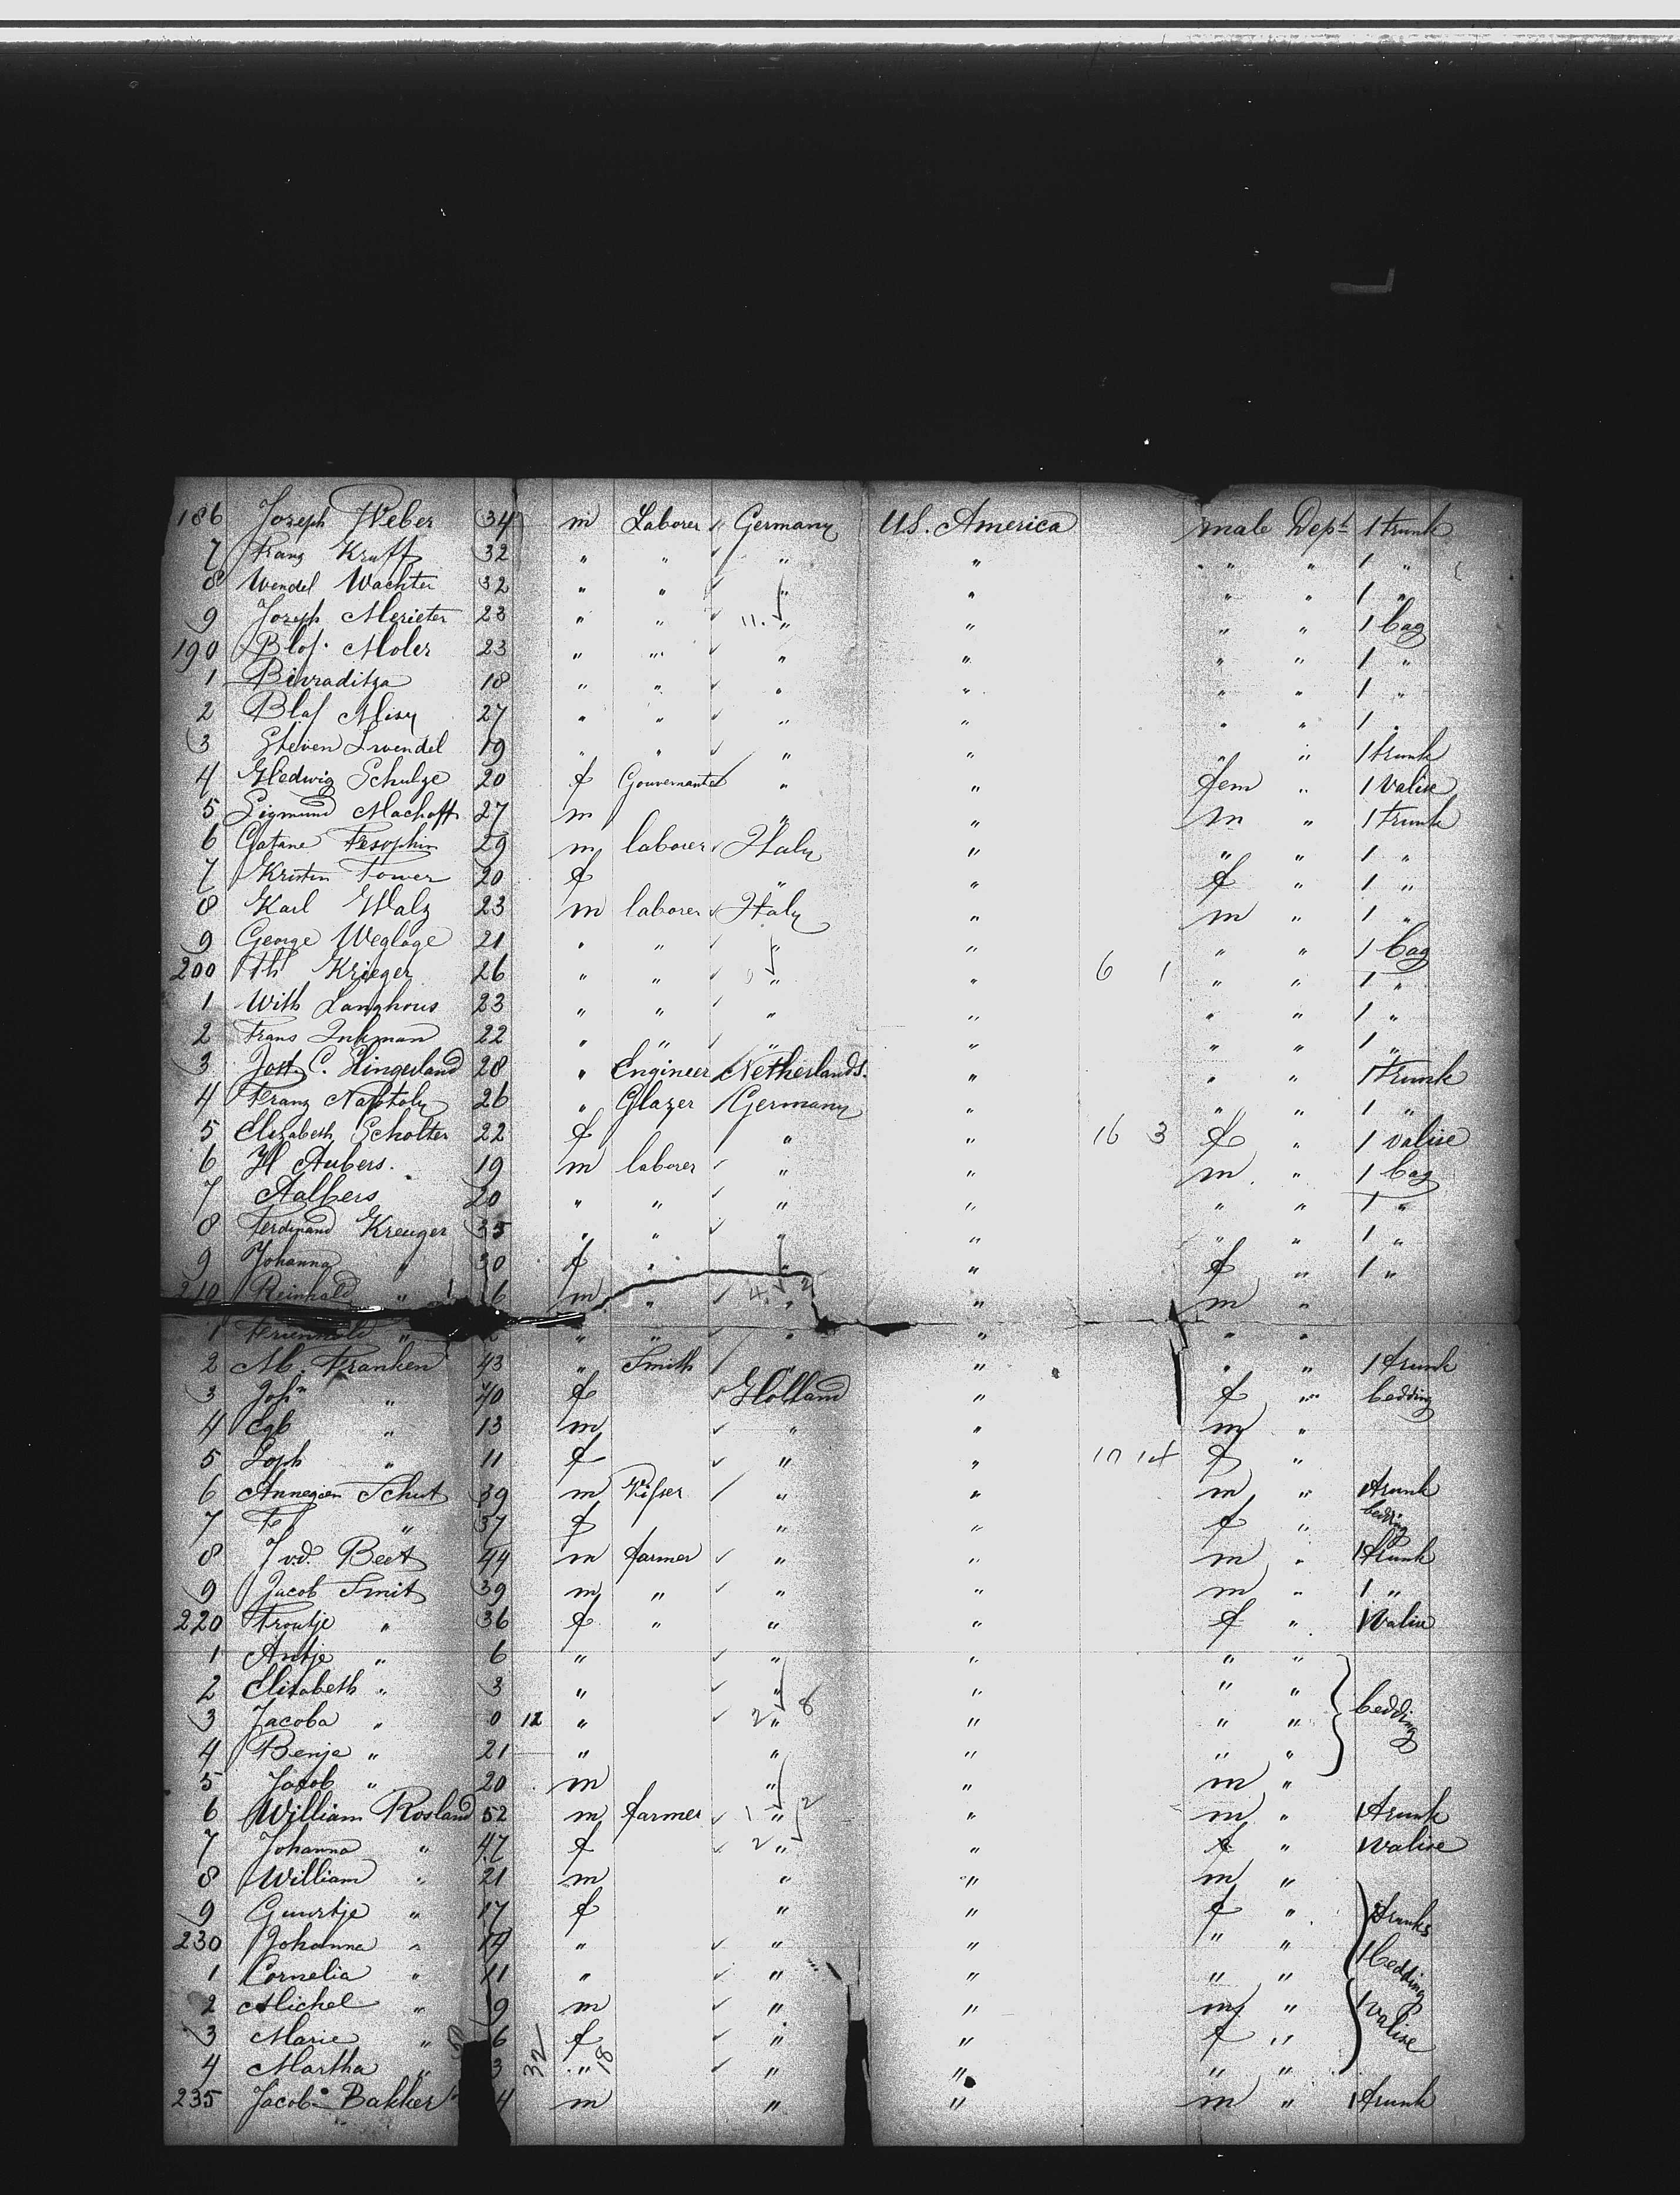 186 Joseph Weber 34 m Laborer Germany U.S. America male Dept 1 trunk
7 Franz Kruff 32 " " " " " " 1 "
8 Wendel Wachter 32 " " " " " " 1 "
9 Joseph Merieter 23 " " 11. " " " " 1 bag
190 Blof. Moler 23 " " " " " " 1 "
1 18 " " " " " " 1 "
2 Blaf 27 " " " " " " 1 "
3 Steven 19 " " " " " " 1 trunk
4 Hedwig Schulze 20 f Gouvernante " " fem " 1 Valise
5 Sigmund Machoff 27 m " " m " 1 trunk
6 29 m laborer Italy " " " 1 "
7 Kristin Tower 20 f " " f " 1 "
8 Karl Walz 23 m laborer Italy " m " 1 "
9 George Weglage 21 " " " " " " 1 bag
200 Th Krieger 26 " " " " 6 1 " " 1 "
1 With Langhoris 23 " " " " " " 1 "
2 Frans Inkman 22 " " " " " " 1 "
3 Jost. C. Slingerland 28 " Engineer Netherlands. " " " 1 trunk
4 Franz Naphtoly 26 " Glazer Germany " " " 1 "
5 Elisabeth Scholter 22 f " " 16 3 f " 1 valise
6 H Aubers. 19 m laborer " " m " 1 bag
7 Aalbers 20 " " " " " " 1 "
8 Ferdinand Kreuger 35 " " " " " " 1 "
9 Johanna " 30 f " " " f " 1 "
210 Reinhold " 6 m " 4 " " m "
1 " " " " " " "
2 M. Franken 43 " Smith " " " 1 trunk
3 Johⁿ " 40 f Holland " f " bedding
4 " 13 m " " m "
5 " 11 f " " f "
6 Annegien Schut 39 m " " m " 1 trunk
7 " 37 f " " f " bedding
8 J v.d. Beet 44 m farmer " " m " 1 trunk
9 Jacob Smit 39 m " " " m " 1 "
220 Troutje " 36 f " " " f " 1 Valise
1 Antje " 6 " " " " "
2 Elisabeth " 3 " " " " "
3 Jacoba " 0 12 " 2 " 8 " " " bedding
4 Benje " 21 " " " " "
5 Jacob " 20 m " " m "
6 William Rosland 52 m farmer 1 " 2 " m " 1 trunk
7 Johanna " 47 f 2 " " f " 1 valise
8 William " 21 m " " m "
9 Guurtje " 17 f " " f " trunks
230 Johanna " 14 " " " " "
1 Cornelia " 11 " " " " " 1 bedding
2 Michel " 9 m " " m "
3 Marie " 6 32 f " " f " 1 valise
4 Martha " 3 " 18 " " " "
235 Jacob Bakker 4 m " " m " 1 trunk